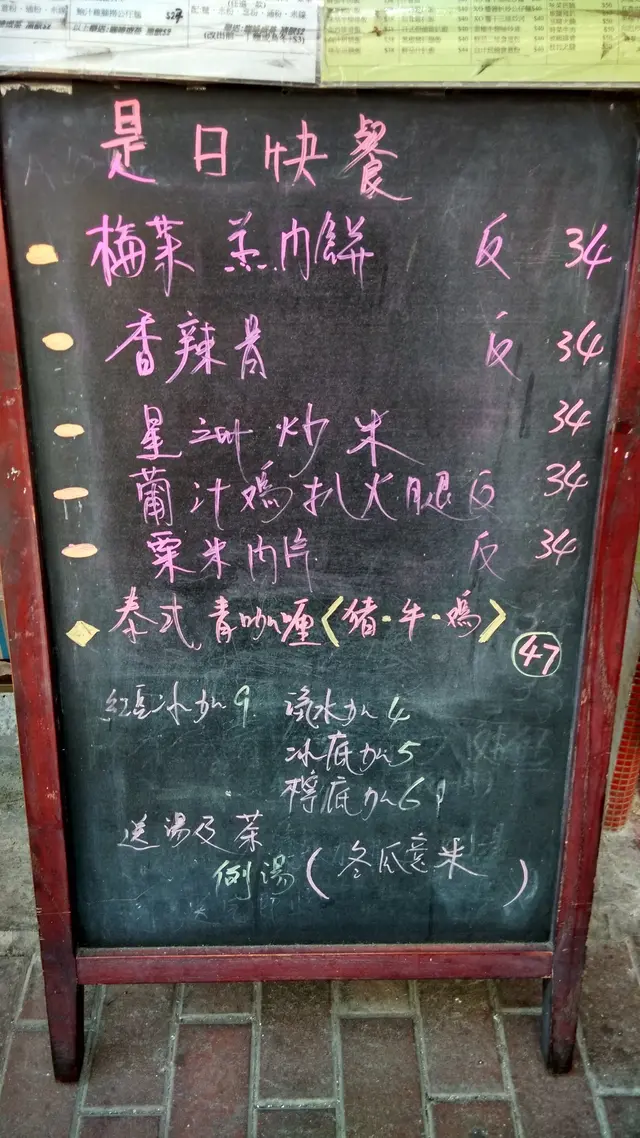 是日快餐
梅菜 蒸肉餅 反 34
香辣骨 反 34
星洲炒米 34
葡汁鸡扒火腿反 34
粟米肉片 反 34
泰式青咖喱〈猪·牛·鸡〉
47
紅豆冰加9 汽水加4
冰底加5
檸底加6
送湯及茶
例湯(冬瓜意米)